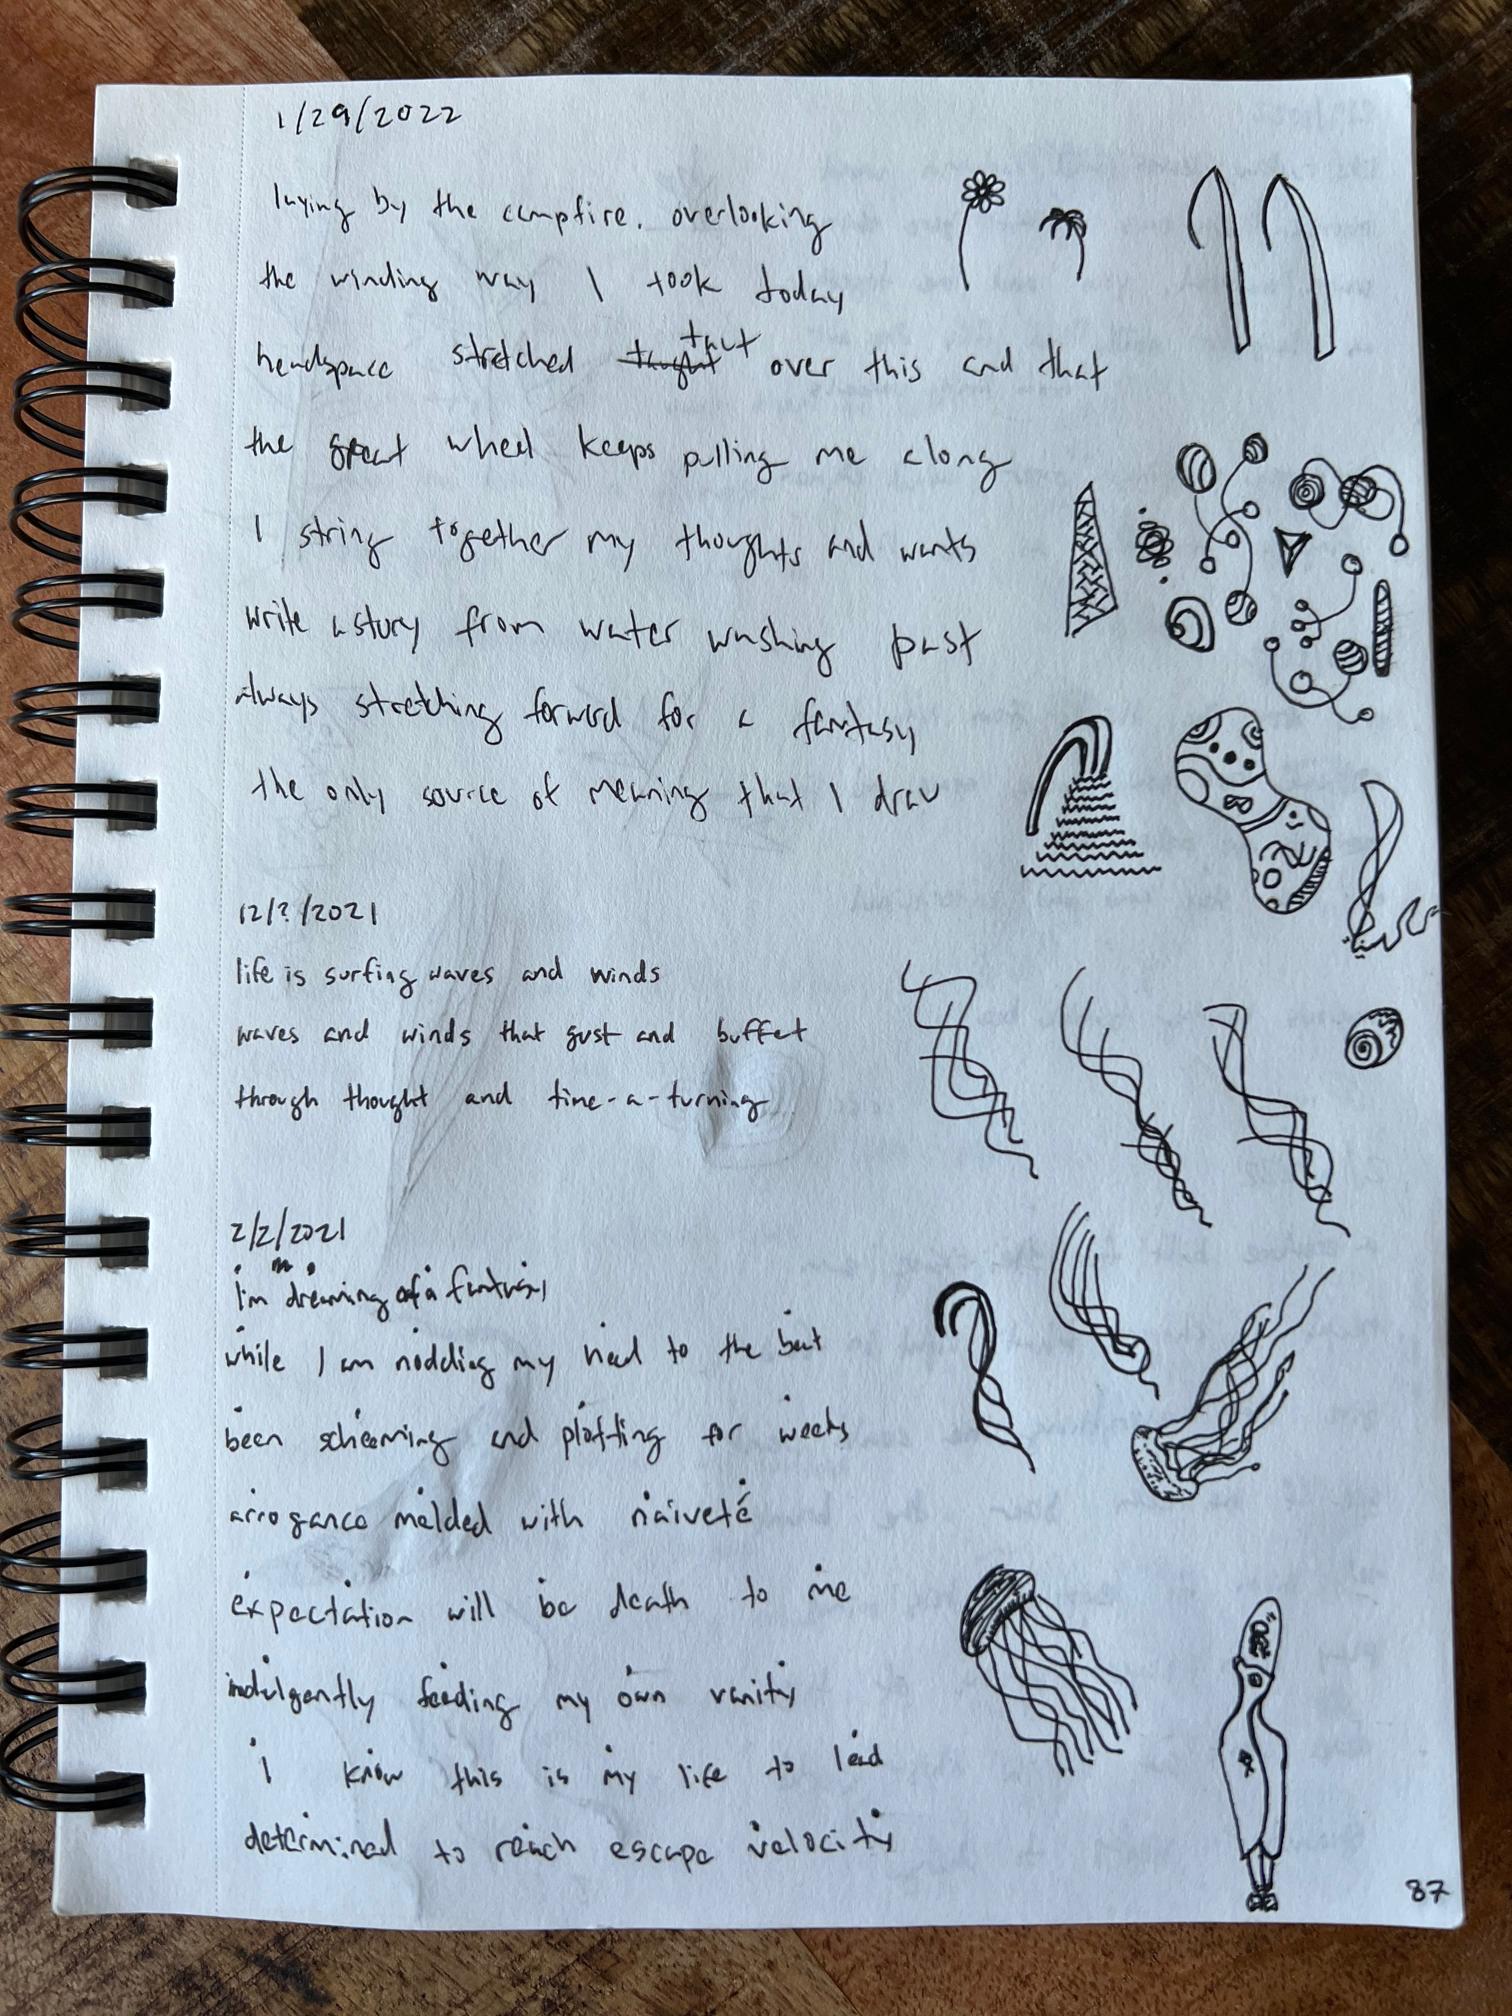 1/29/2022
laying by the campfire. overlooking
the winding way I took today
headspace stretched taught taut over this and that
the great wheel keeps pulling me along
I string together my thoughts and wants
write a story from water washing past
always stretching forward for a fantasy
the only source of meaning that I draw
12/?/2021
life is surfing waves and winds
waves and winds that gust and buffet
through thought and time-a-turning
2/2/2021
i'm dreaming of a fantasy
while I am nodding my head to the beat
been scheeming and plotting for weeks
arrogance melded with naiveté
expectation will be death to me
indulgently feeding my own vanity
i know this is my life to lead
determined to reach escape velocity
87